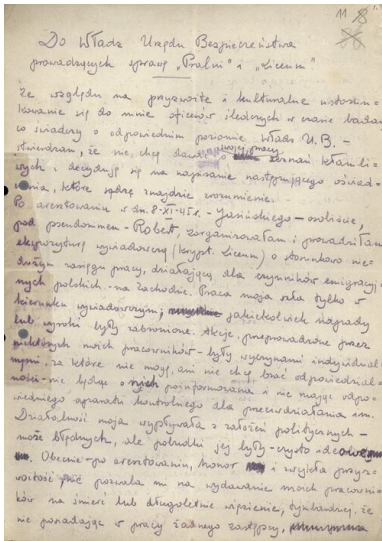 11
Do Władz Urzędu Bezpieczeństwa
prowadzących sprawę „Pralni” i „Liceum”
Ze względu na przyzwoite i kulturalne ustosun-
kowanie się do mnie oficerów śledczych w czasie badań
co świadczy o odpowiednim poziomie Władz U.B. –
stwierdzam, że nie chcę dawać o pracy zeznań kłamli-
wych i decyduję się na napisanie następującego oświad-
czenia, które sądzę znajdzie zrozumienie.
Po aresztowaniu w dn. 8-XI-45 r. – Jasińskiego – osobiście,
pod pseudonimem – Robert, zorganizowałam i prowadziłam
ekspozyturę wywiadowczą (krypt. Liceum) o stosunkowo nie-
dużym zasięgu pracy, działającą dla czynników emigracyj-
nych polskich – na zachodzie. Praca moja szła tylko w
kierunku wywiadowczym; jakiekolwiek
lub wyroki były zabronione. Akcje, przeprowadzone przez
niektórych moich pracowników – były wyczynami indywidual-
nymi – za które nie mogę, ani nie chcę brać odpowiedzial-
ności – nie będąc o nich poinformowana i nie mając odpo-
wiedniego aparatu kontrolnego dla przeciwdziałania im.
Działalność moja wypływała z założeń politycznych –
może błędnych, ale pobudki jej były – czysto
Obecnie – po aresztowaniu, honor i przyz-
woitość nie pozwala mi na wydawanie moich pracowni-
ków na śmierć lub długoletnie więzienie, tymbardziej, że
nie posiadając w pracy żadnego zastępcy,